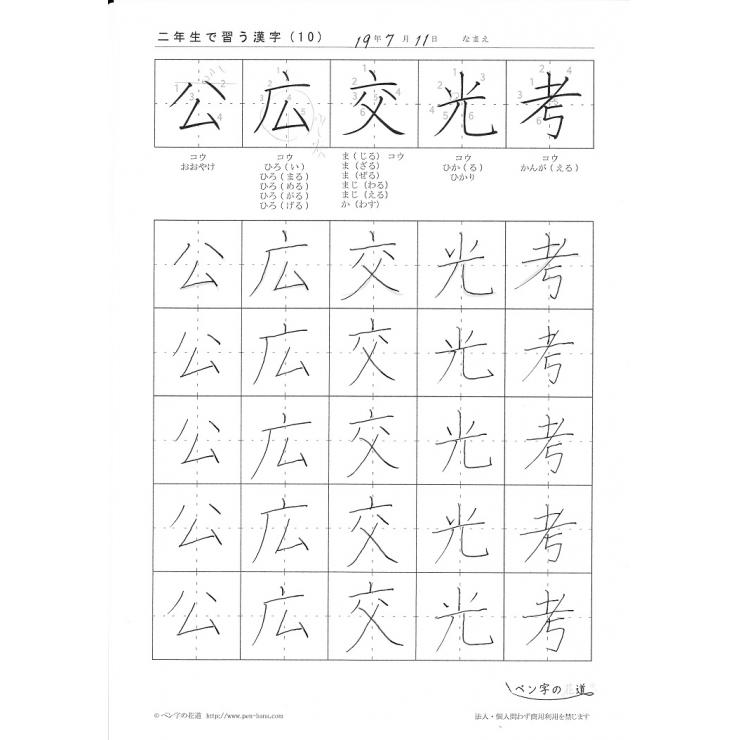 二年生で習う漢字(10) 19年 7月 11日 なまえ
公 広 交 光 考
コウ
おおやけ
コウ
ひろ(い)
ひろ(まる)
ひろ(める)
ひろ(がる)
ひろ(げる)
ま(じる) コウ
ま(ざる)
ま(ぜる)
まじ(わる)
まじ(える)
か(わす)
コウ
ひか(る)
ひかり
コウ
かんが(える)
公 広 交 光 考
公 広 交 光 考
公 広 交 光 考
公 広 交 光 考
公 広 交 光 考
ペン字の花道
© ペン字の花道 http://www.pen-hana.com 法人・個人問わず商用利用を禁じます